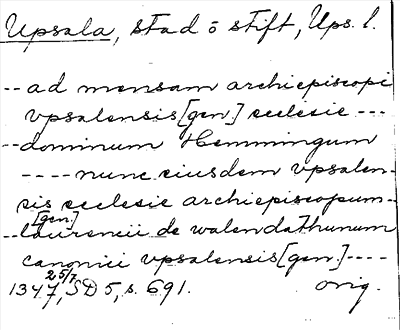 Upsala, stad o stift, Ups. l.
-- ad mensam archiepiscopi
vpsalensis [gen.] ecclesie ---
-- dominum Hemmingum
---- nunc eiusdem vpsalen-
sis ecclesie archiepiscopum --
[gen.]
-- laurencii de walendathunum
canonici vpsalensis [gen.] ----
1347 25/7, SD 5, s. 691. orig.